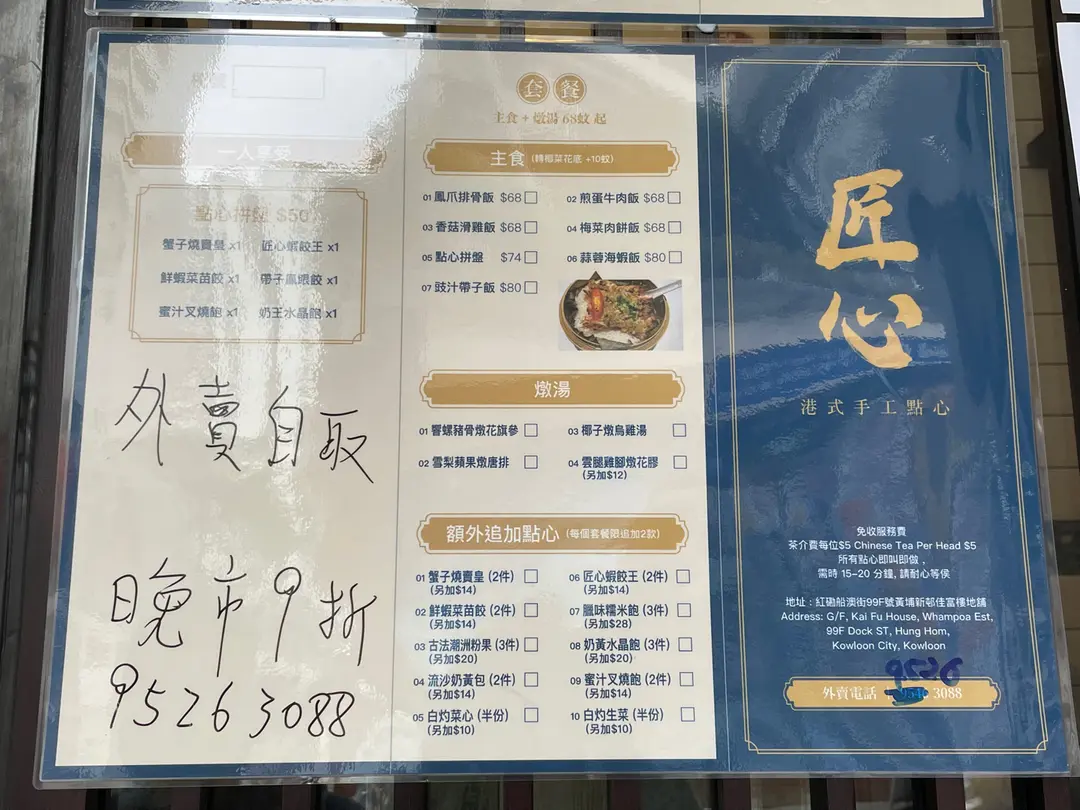 一人享受
點心拼盤 $50
蟹子燒賣皇 x1 匠心蝦餃王 x1
鮮蝦菜苗餃 x1 帶子鳳眼餃 x1
蜜汁叉燒飽 x1 奶王水晶飽 x1
外賣自取
晚市9折
9526 3088
套餐
主食 + 燉湯 68蚊 起
主食 (轉椰菜花底 +10蚊)
01 鳳爪排骨飯 $68
02 煎蛋牛肉飯 $68
03 香菇滑雞飯 $68
04 梅菜肉餅飯 $68
05 點心拼盤 $74
06 蒜蓉海蝦飯 $80
07 豉汁帶子飯 $80
燉湯
01 響螺豬骨燉花旗參
03 椰子燉烏雞湯
02 雪梨蘋果燉唐排
04 雲腿雞腳燉花膠
(另加$12)
額外追加點心 (每個套餐限追加2款)
01 蟹子燒賣皇 (2件)
(另加$14)
02 鮮蝦菜苗餃 (2件)
(另加$14)
03 古法潮洲粉果 (3件)
(另加$20)
04 流沙奶黃包 (2件)
(另加$14)
05 白灼菜心 (半份)
(另加$10)
06 匠心蝦餃王 (2件)
(另加$14)
07 臘味糯米飽 (3件)
(另加$28)
08 奶黃水晶飽 (3件)
(另加$20)
09 蜜汁叉燒飽 (2件)
(另加$14)
10 白灼生菜 (半份)
(另加$10)
匠心
港式手工點心
免收服務費
茶介費每位$5 Chinese Tea Per Head $5
所有點心即叫即做 ,
需時 15-20 分鐘, 請耐心等侯
地址 : 紅磡船澳街99F號黃埔新邨佳富樓地舖
Address: G/F, Kai Fu House, Whampoa Est,
99F Dock ST, Hung Hom,
Kowloon City, Kowloon
9526
外賣電話 3088